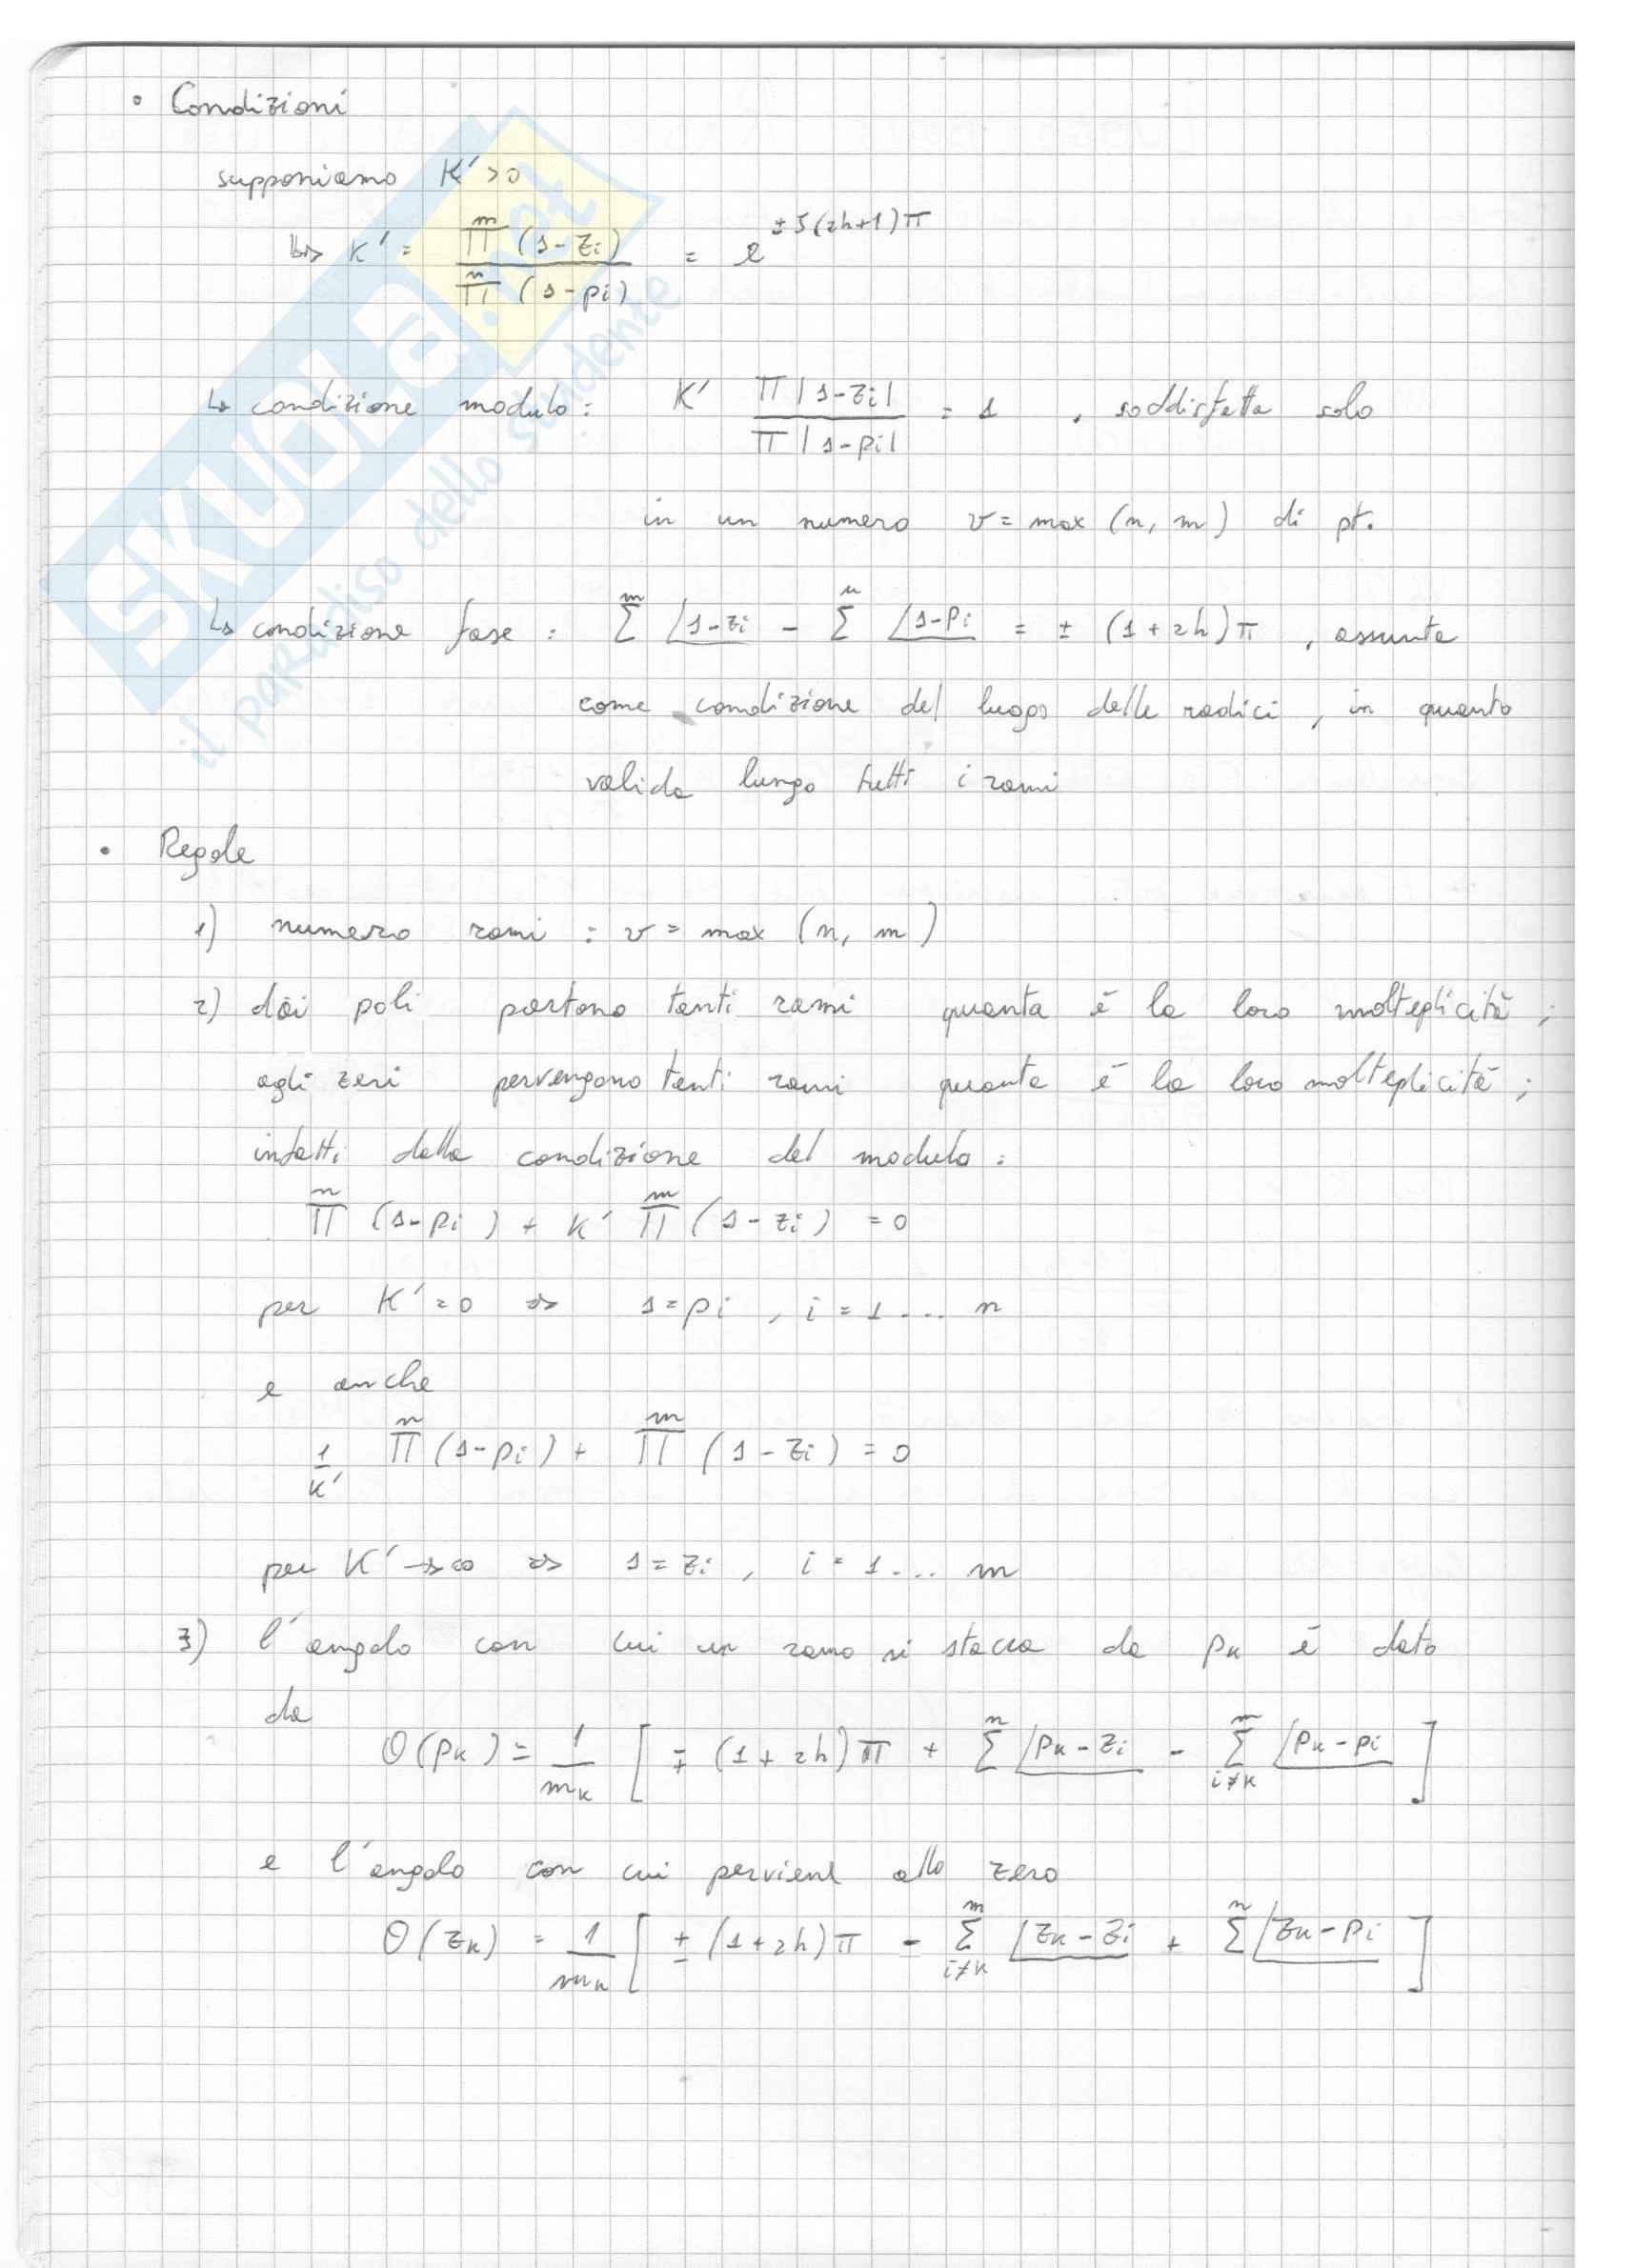 • Condizioni
supponiamo K' > 0
=> K' = ∏^m (s - zi) / ∏^n (s - pi) = e^{± j(2h+1)π}
↳ condizione modulo : K' ∏ |s - zi| / ∏ |s - pi| = 1 , soddisfatta solo
in un numero v = max (n, m) di pt.
↳ condizione fase : ∑^m ∠s - zi - ∑^n ∠s - pi = ± (1 + 2h) π , assunta
come condizione del luogo delle radici, in quanto
valida lungo tutti i rami
• Regole
1) numero rami : v = max (n, m)
2) dai poli partono tanti rami quanta è la loro molteplicità ;
agli zeri pervengono tanti rami quanta è la loro molteplicità ;
infatti dalla condizione del modulo :
∏^n (s - pi) + K' ∏^m (s - zi) = 0
per K' = 0 => s = pi , i = 1 ... n
e anche
1/K' ∏^n (s - pi) + ∏^m (s - zi) = 0
per K' → ∞ => s = zi , i = 1 ... m
3) l'angolo con cui un ramo si stacca da pk è dato
da
Θ(pk) = 1/mk [ ∓ (1 + 2h) π + ∑^n ∠pk - zi - ∑^m_{i≠k} ∠pk - pi ]
e l'angolo con cui perviene allo zero
Θ(zk) = 1/mk [ ± (1 + 2h) π - ∑^m_{i≠k} ∠zk - zi + ∑^n ∠zk - pi ]
SKUOLA.net
il paradiso dello studente